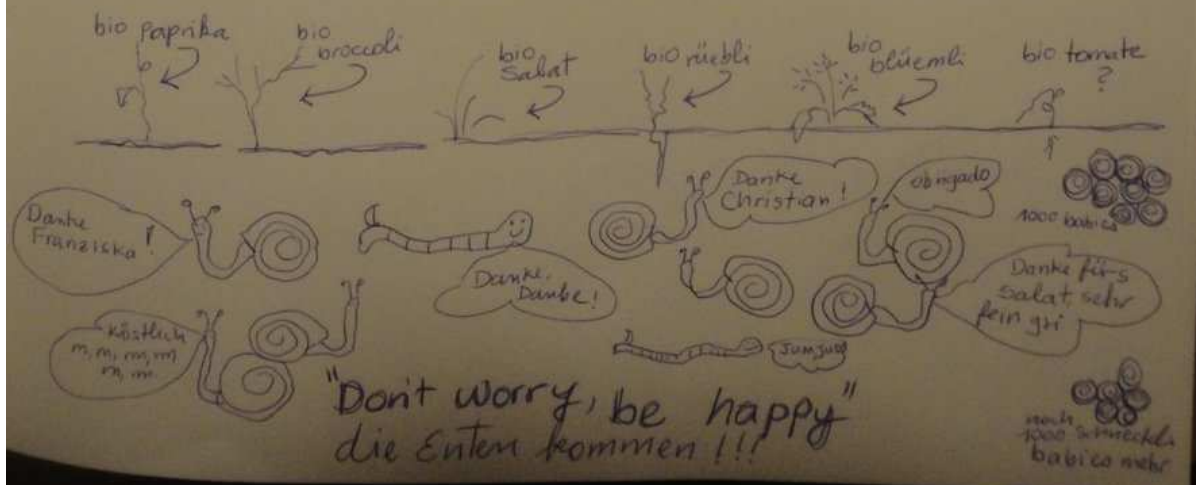 bio paprika
bio
broccoli
bio
Salat
bio rüebli
bio
blüemli
bio tomate
?
Danke
Franziska!
Danke.
Danke!
Danke
Christian!
obrigado
1000 babies
Danke für's
Salat, sehr
fein gsi
köstlich
m, m, m, m,
m, m.
"Don't worry, be happy"
die Enten kommen!!!
noch
1000 schneckli
babies mehr